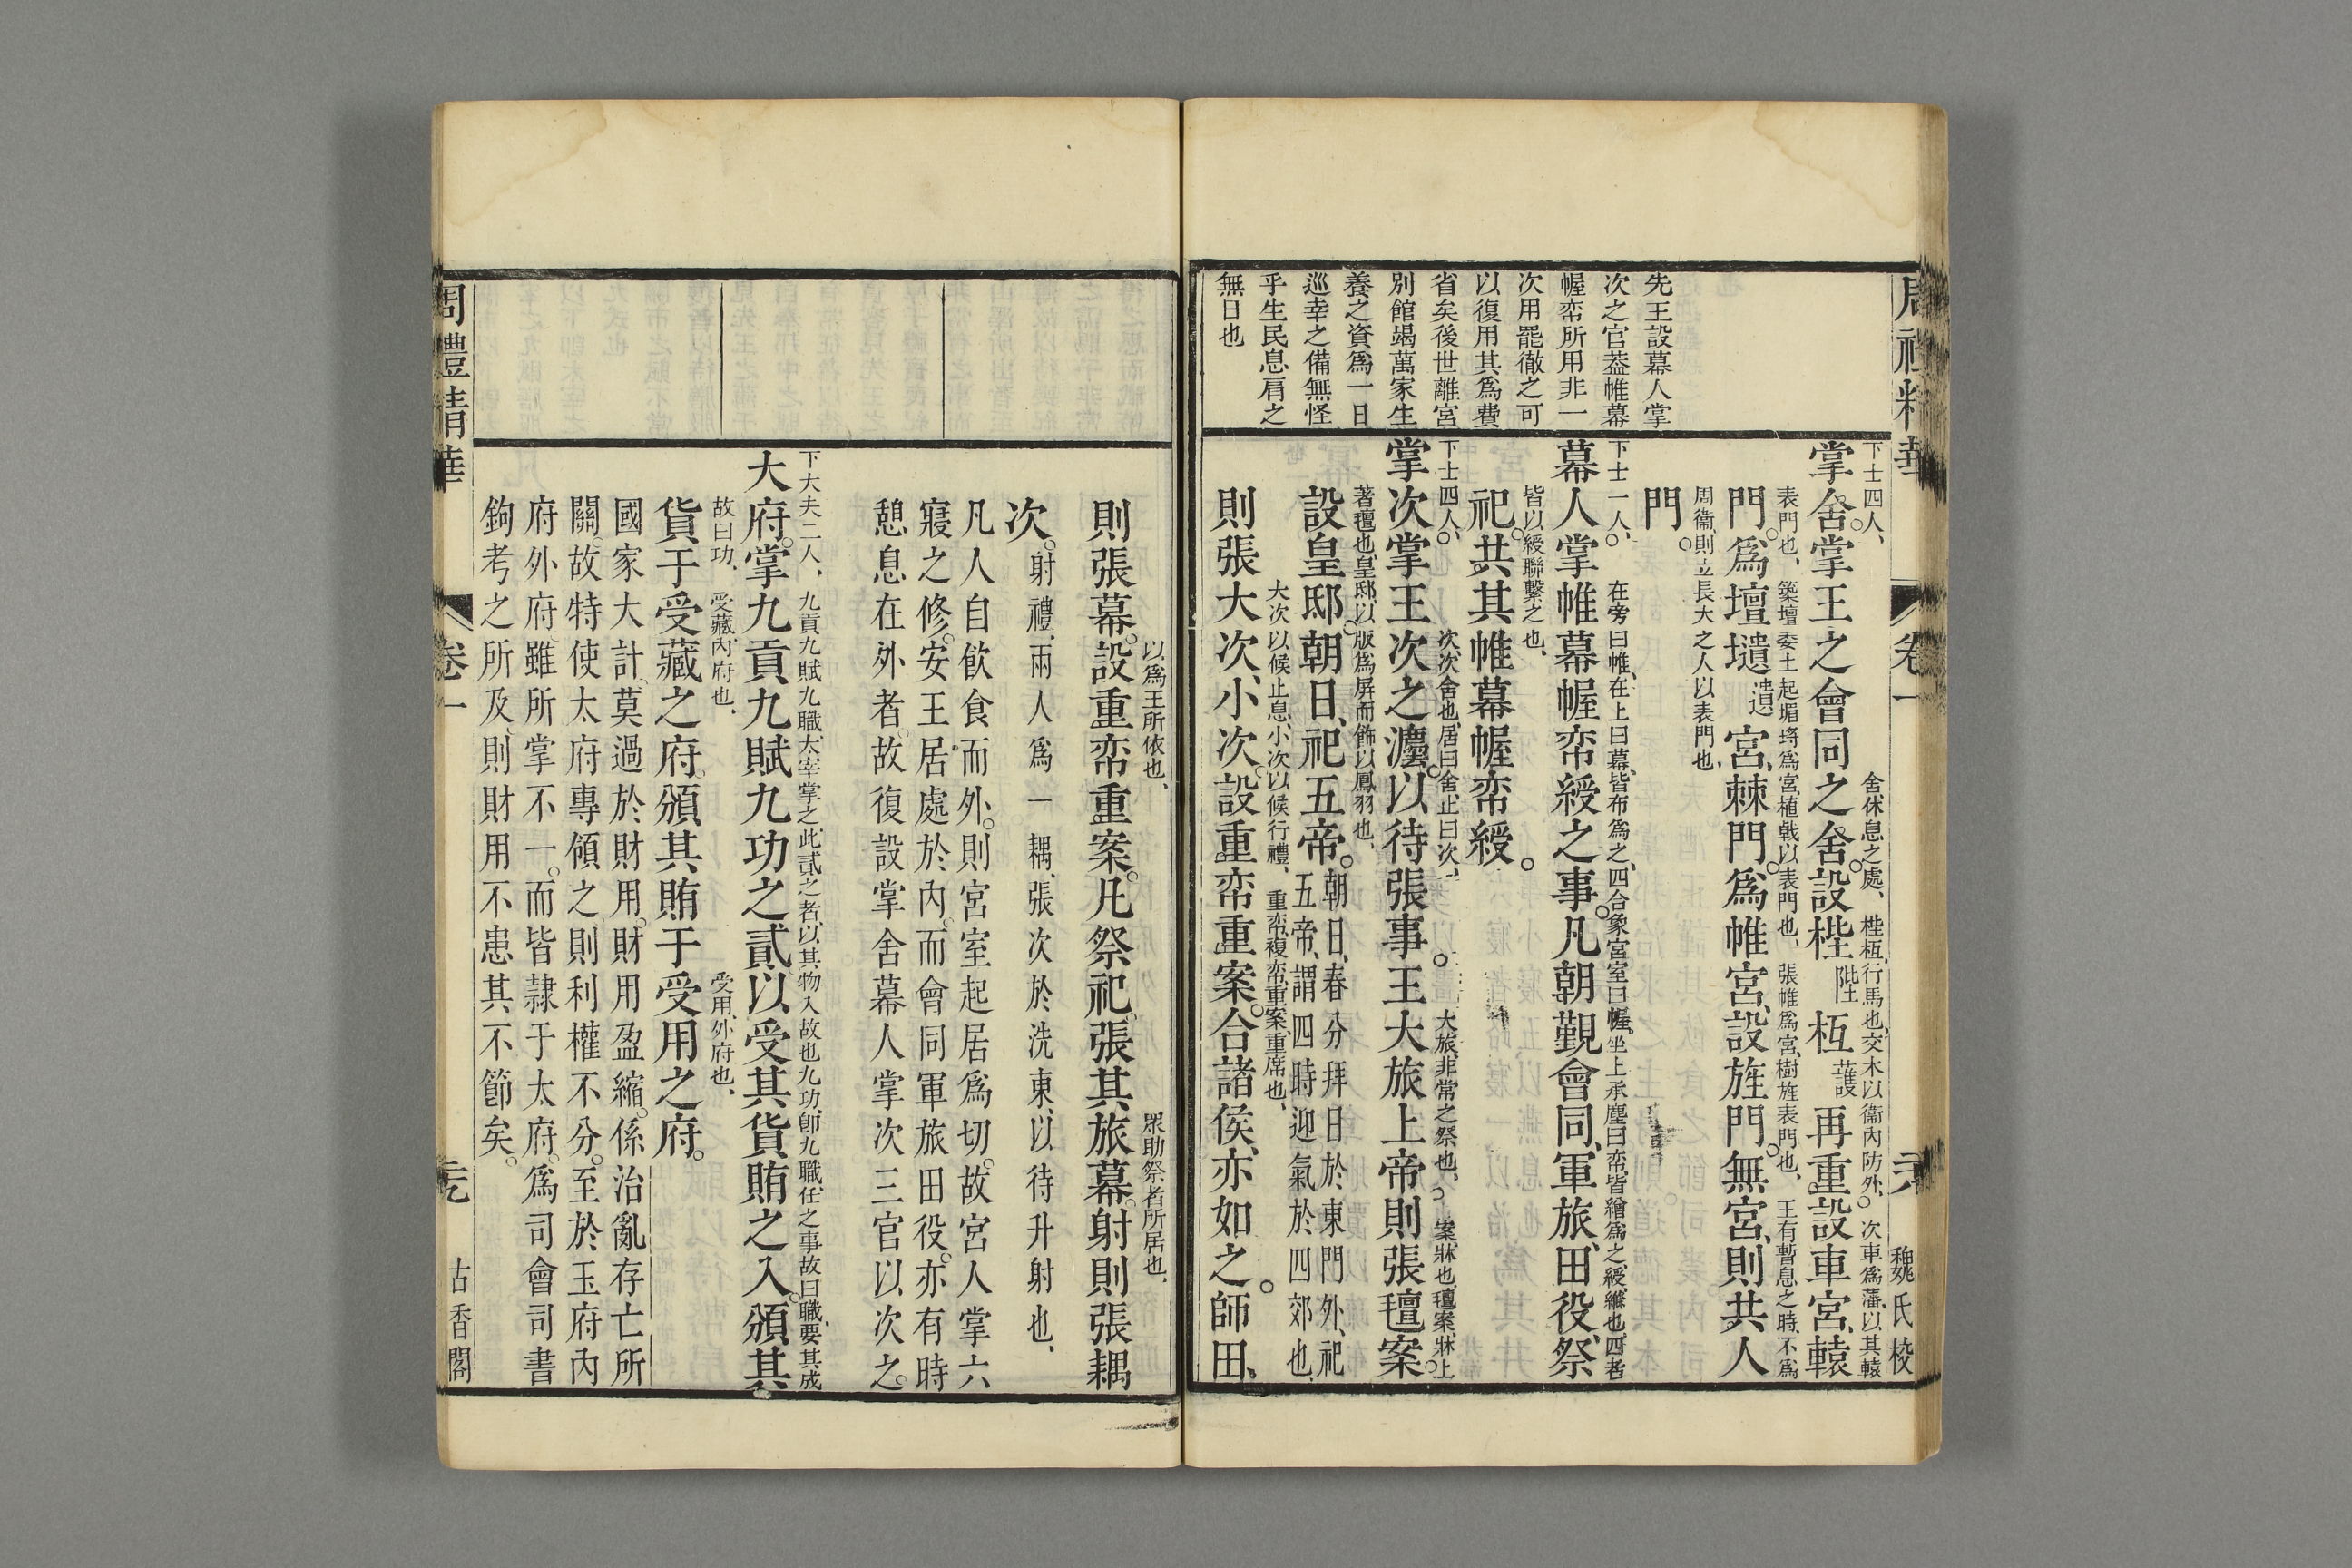 周禮精華
卷一
魏氏校
先王設幕人掌
次之官葢帷幕
幄帟所用非一
次用罷徹之可
以復用其爲費
省矣後世離宮
別館竭萬家生
養之資爲一日
巡幸之備無怪
乎生民息肩之
無日也
下士四人、舍、休息之處、梐枑、行馬也、交木以衞內防外、次車爲藩、以其轅
掌舍。掌王之會同之舍。設梐陛枑護再重。設車宮、轅
表門也、築壇委土起堳埒爲宮、植戟以表門也、張帷爲宮、樹旌表門也、王有暫息之時、不爲
門。爲壇壝遺宮、棘門。爲帷宮、設旌門。無宮、則共人
周衞、則立長大之人以表門也
門。
下士一人、在旁曰帷、在上曰幕、皆布爲之、四合象宮室曰幄、坐上承塵曰帟、皆繒爲之、綬、縧也、四者
幕人掌帷幕幄帟綬之事。凡朝覲會同、軍旅、田役、祭
皆以綬聯繫之也、
祀。共其帷幕幄帟綬。
下士四人、次、次舍也、居曰舍、止曰次、大旅、非常之祭也、案、牀也、氊案、牀上
掌次掌王次之灋。以待張事。王大旅上帝則張氊案。
著氊也、皇邸、以版爲屏而飾以鳳羽也、
設皇邸朝日、祀五帝。朝日、春分拜日於東門外、祀
五帝、謂四時迎氣於四郊也、
大次以候止息、小次以候行禮、重帟、複帟、重案、重席也、
則張大次、小次。設重帟重案。合諸侯、亦如之。師田、
以爲王所依也、眾助祭者所居也、
則張幕。設重帟重案。凡祭祀。張其旅幕。射則張耦
次。射禮、兩人爲一耦、張次於洗東、以待升射也、
凡人自飲食而外。則宮室起居爲切。故宮人掌六
寢之修。安王居處於內。而會同軍旅田役。亦有時
憩息在外者。故復設掌舍幕人掌次三官以次之。
下大夫二人、九貢九賦九職、太宰掌之、此貳之者、以其物入故也、九功、卽九職、任之事故曰職、要其成
大府。掌九貢九賦九功之貳以受其貨賄之入。頒其
故曰功、受藏、內府也、受用、外府也、
貨于受藏之府。頒其賄于受用之府。
國家大計。莫過於財用。財用盈縮。係治亂存亡所
關。故特使太府專領之則利權不分。至於玉府內
府外府。雖所掌不一。而皆隷于太府。爲司會司書
鉤考之所及。則財用不患其不節矣。
周禮精華
卷一
古香閣